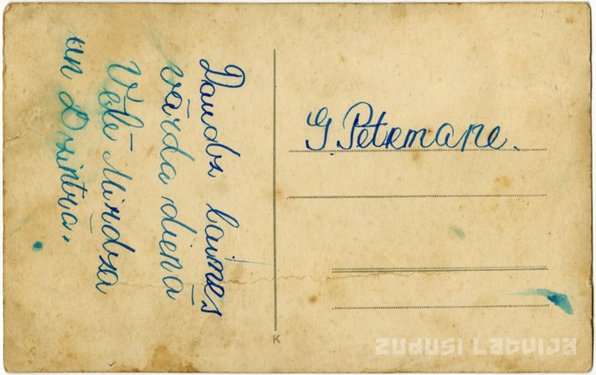 Daudz laimes
vārda dienā
Vēlē Mirdza
un Dzintra.
G. Petrmane.
K
zudusi Latvija